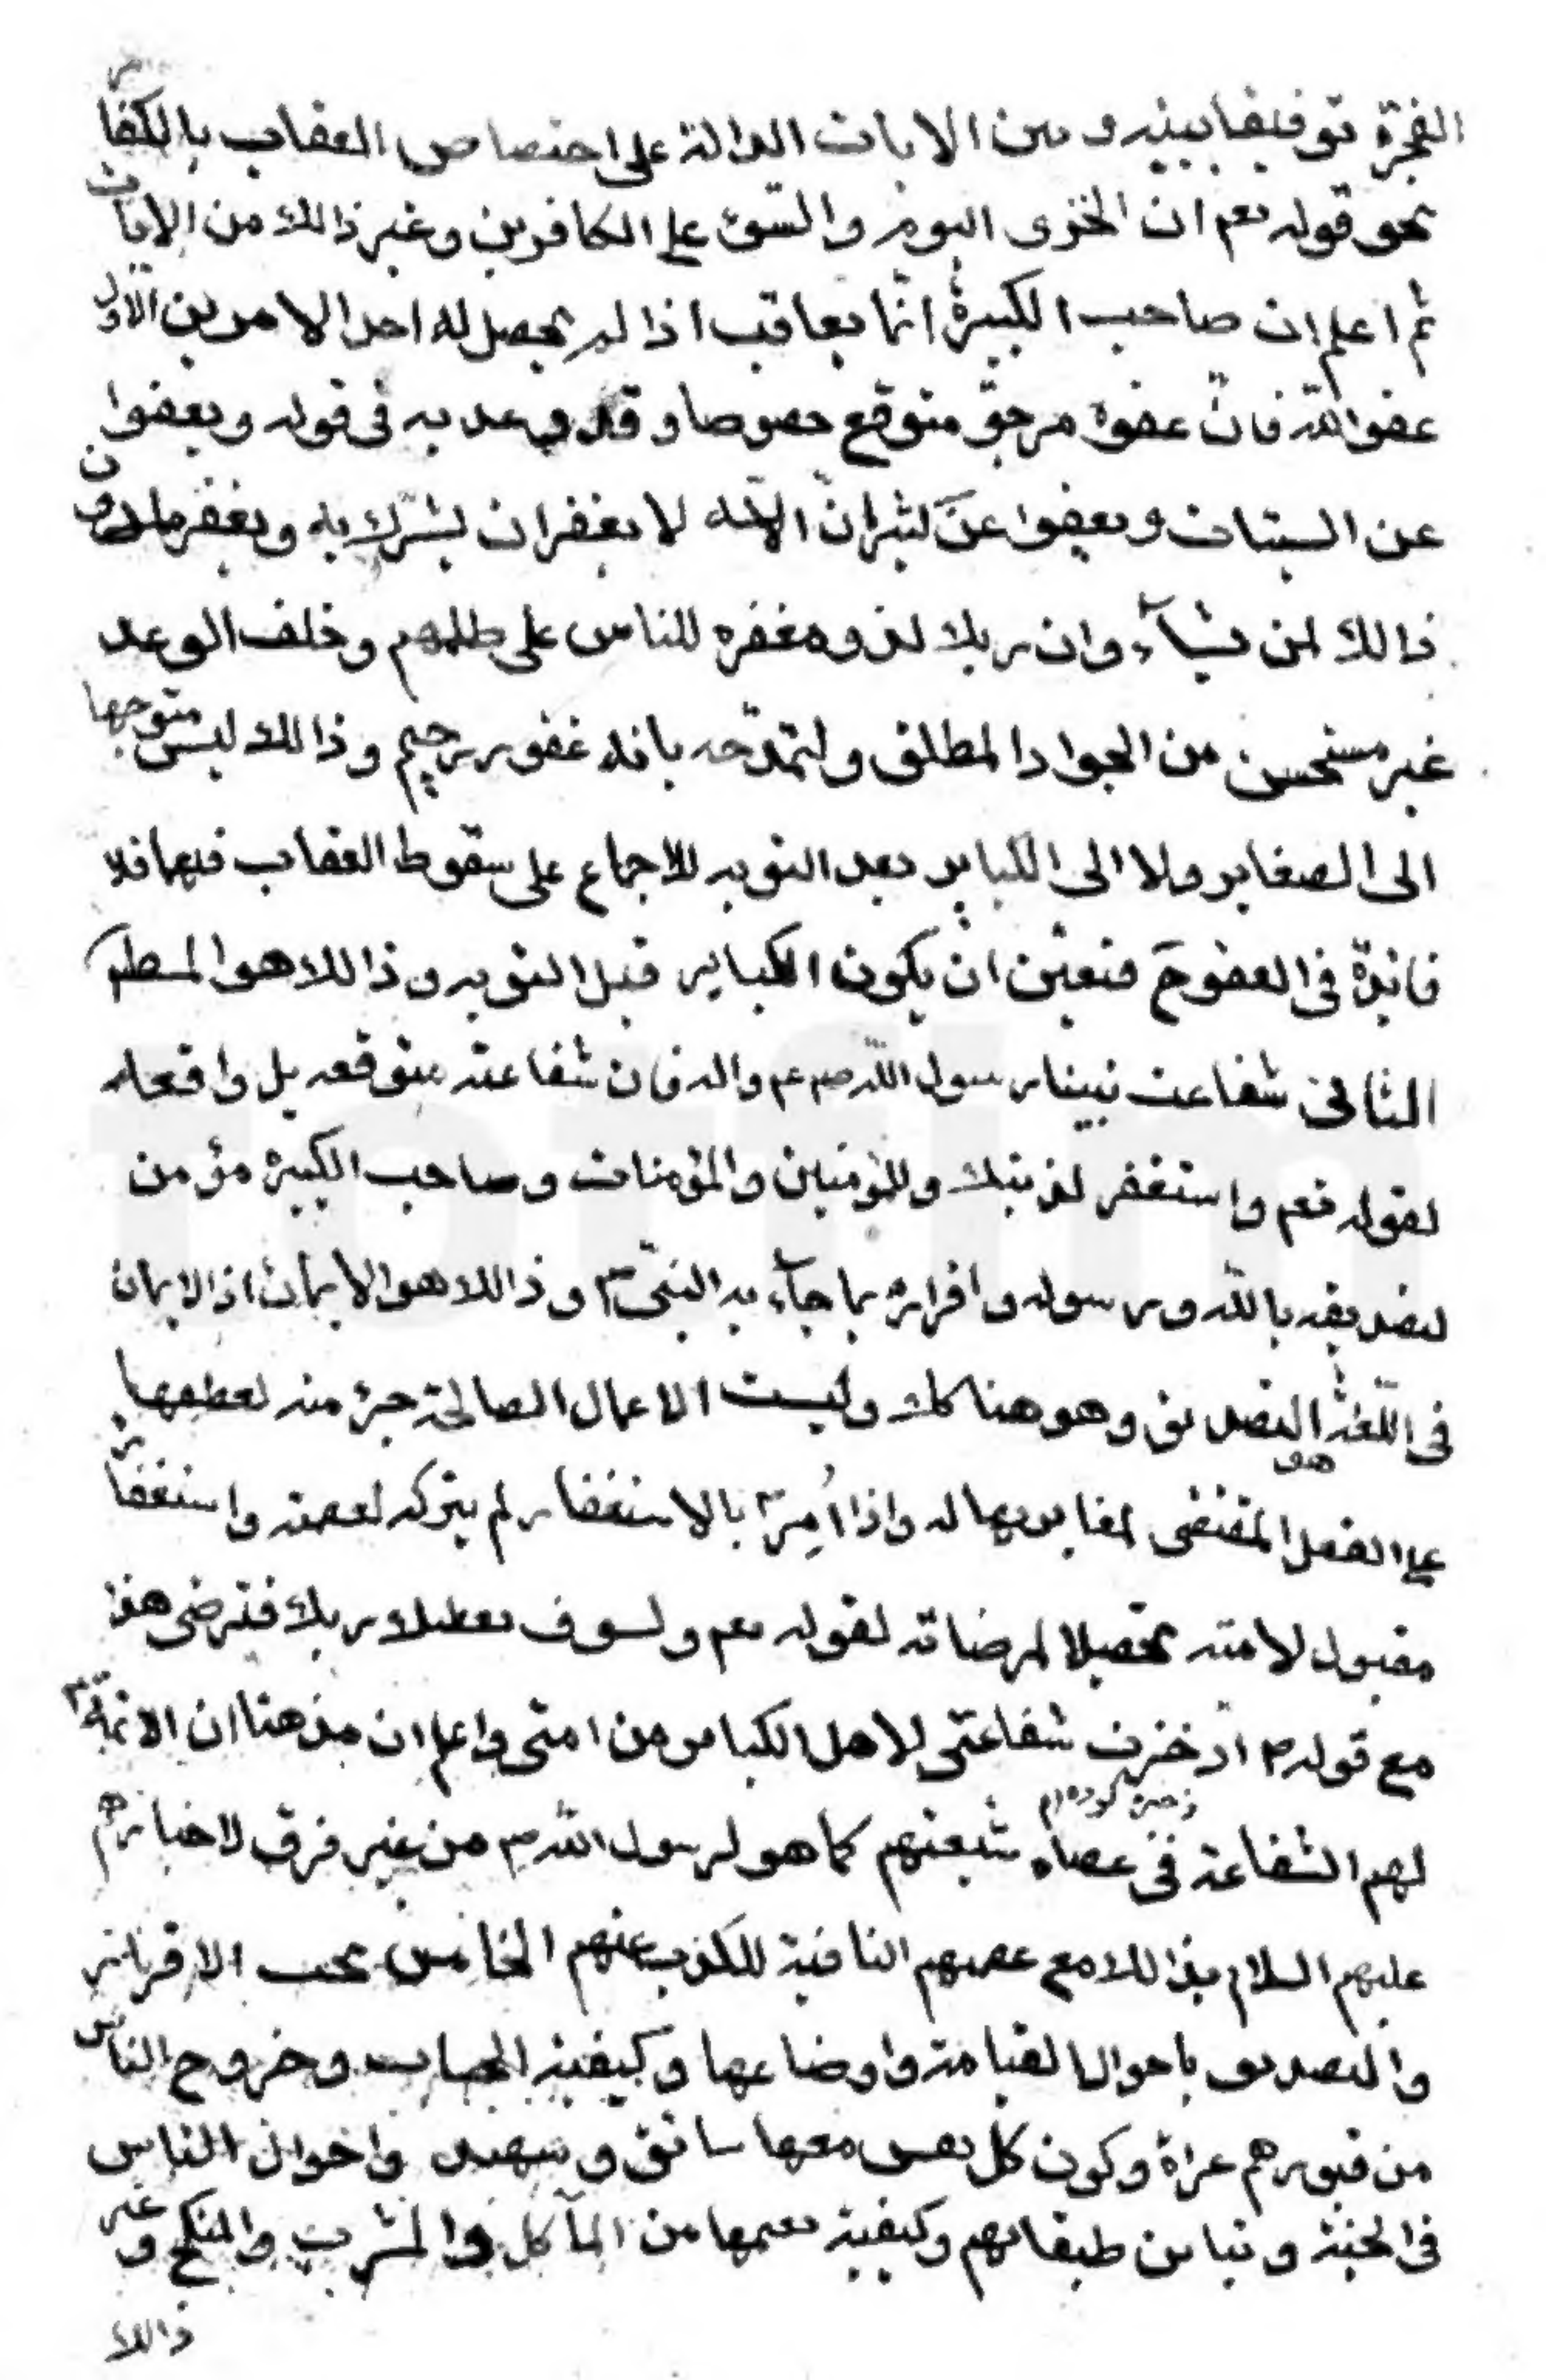 الفجرة توفيقا بينه و بين الايات الدالة على اختصاص العقاب بالكفار
نحو قوله تعم ان الخزى اليوم والسّوء على الكافرين وغير ذالك من الايات
ثم اعلم ان صاحب الكبيرة انّما يعاقب اذا لم يحصل له احد الامرين الاول
عفو الله فانّ عفوه مرجوّ متوقع خصوصا و قد وعد به فى قوله ويعفوا
عن السيئات ويعفوا عن كثير انّ الله لا يغفر ان يشرك به ويغفر مادون
ذالك لمن يشآء وان ربك لذو مغفرة للناس على ظلمهم وخلف الوعد
غير مستحسن من الجواد المطلق ولتمدّحه بانه غفور رحيم وذالك ليس متوجها
الى الصغاير ولا الى الكباير بعد التوبه للاجماع على سقوط العقاب فيهما فلا
فائدة فى العفو ح فتعيّن ان يكون الكباير قبل التوبه وذالك هو المطم
الثانى شفاعت نبينا رسول الله صم عم واله فان شفاعته متوقعه بل واقعه
لقوله تعم واستغفر لذنبك وللمؤمنين والمؤمنات وصاحب الكبيرة مؤمن
لتصديقه بالله ورسوله واقراره بما جآء به النبىّ ص وذالك هو الايمان اذ الايمان
فى اللّغة هو التصديق وهو هنا كك وليست الاعمال الصالحة جزء منه لعطفها
على الفعل المقتضى لمغايرتها له واذا اُمِرَ ص بالاستغفار لم يتركه لعصمته واستغفاره
مقبول لامته تحصيلا لمرضاته لقوله تعم ولسوف يعطيك ربك فترضى هذا
مع قوله ص ادخرت شفاعتى لاهل الكباير من امتى واعلم ان مذهبنا ان الائمة ع
لهم الشفاعة فى عصاه شيعتهم كما هو لرسول الله ص من غير فرق لاخبارهم
عليهم السلام بذالك مع عصمتهم النافية للكذب عنهم الخامس يجب الاقرار
والتصديق باحوال القيامة واوضاعها وكيفية الحساب وخروج الناس
من قبورهم عراة وكون كل نفس معها سائق وشهيد واحوال الناس
فى الجنة وتباين طبقاتهم وكيفية نعيمها من المآكل والمشرب والمنكح وغير
ذالك